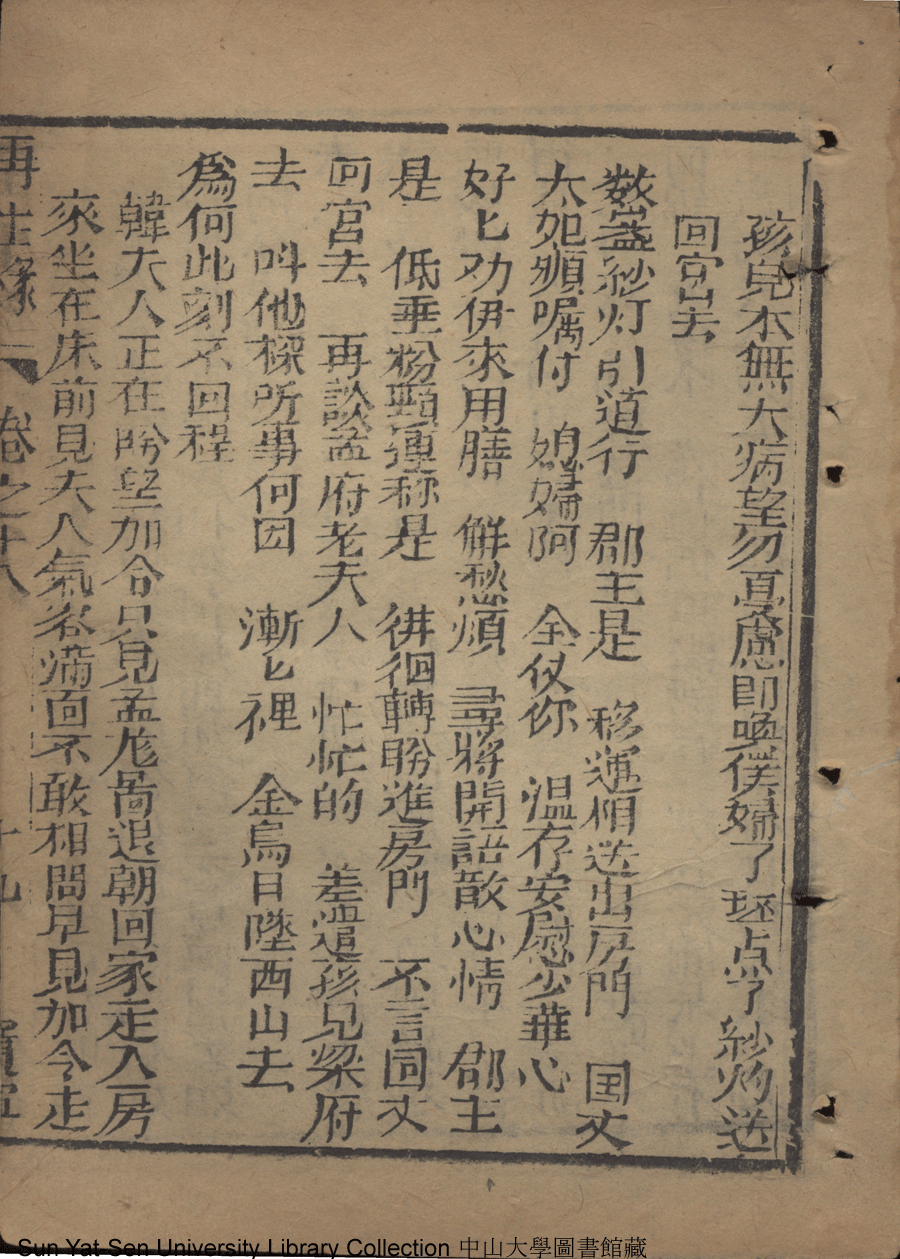 孩兒本無大病望勿憂慮即喚僕婦了环点了紗灼送
回宮去
数盞紗灯引道行　郡主是　移運相送出房門　囯丈
太妃頻嘱付　媳婦阿　全仗你　温存安慰少華心
好匕劝伊來用膳　觧愁煩　尋將開語散心情　郡主
是　低垂粉頸連称是　徘徊轉盼進房門　不言囯丈
回宮去　再談孟府老夫人　忙忙的　差遣孩兒梁府
去　呌他探所事何因　漸匕裡　金烏日墜西山去
爲何此刻不回程
韓夫人正在盼望加合只見孟龙啚退朝回家走入房
來坐在床前見夫人氣容滿面不敢相問早見加令走
再生緣　卷之十八　十九　寶寧
Sun Yat Sen University Library Collection 中山大學圖書館藏